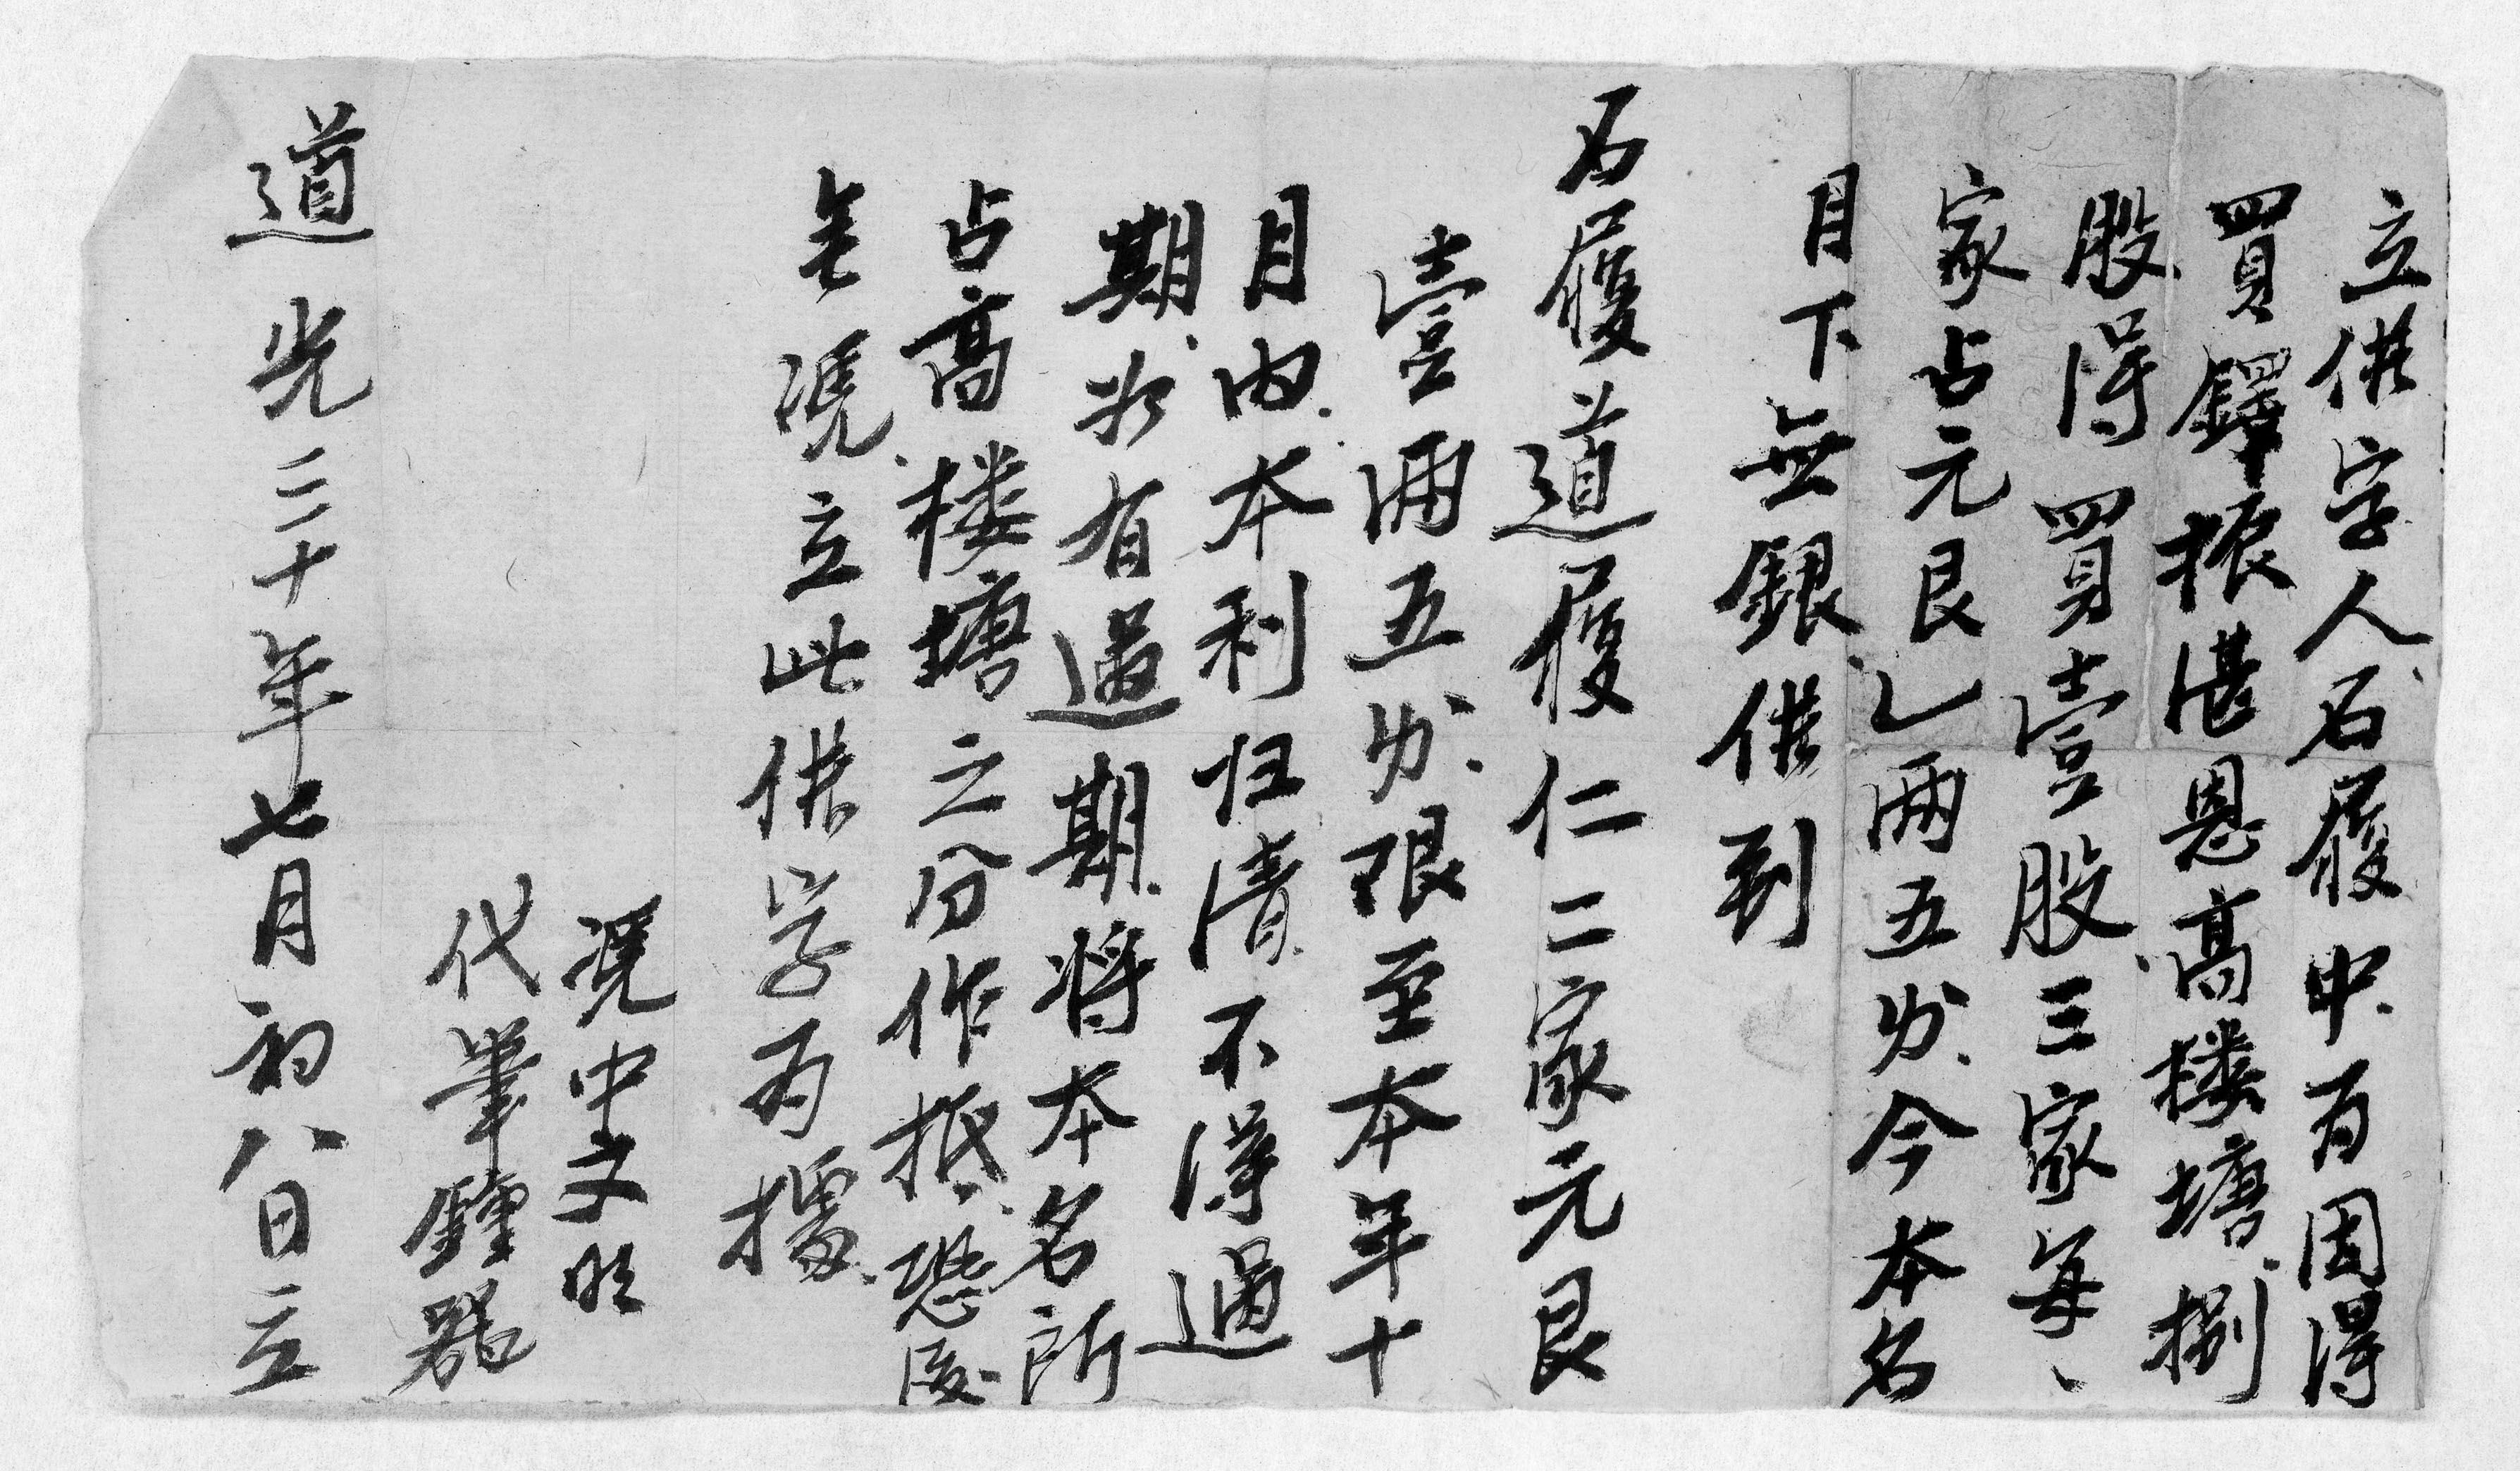 立借字人石履中為因得
買鐸振湛恩高楼塘捌
股得買壹股三家每、
家占元艮乚两五分今本名
目下無銀借到
石履道履仁二家元艮
壹両五分限至本年十
月内本利归清不得過
期如有過期将本名所
占高楼塘之分作抵恐後
無凭立此借字為據
凭中文明
代筆鍾器
道光二十年七月初八日立